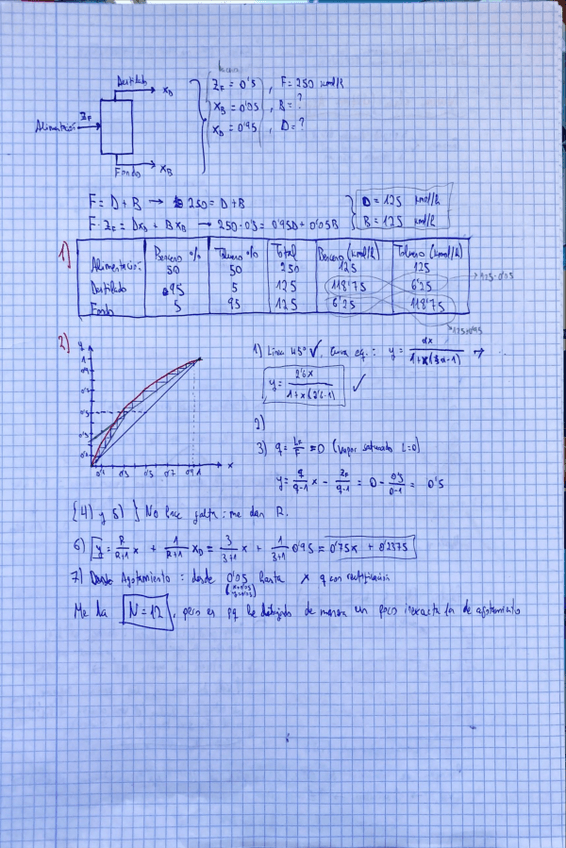 Destilado
x_D
z_F = 0'5 , F = 250 kmol/h
Alimentación z_F
x_B = 0'05 , B = ?
x_D = 0'95 , D = ?
Fondo
x_B
F = D + B → 250 = D + B
D = 125 kmol/h
F · z_F = Dx_D + Bx_B → 250·0'5 = 0'95D + 0'05B
B = 125 kmol/h
1)
Benceno % Tolueno % Total Benceno (kmol/h) Tolueno (kmol/h)
Alimentación 50 50 250 125 125
Destilado 95 5 125 118'75 6'25
Fondo 5 95 125 6'25 118'75
125·0'05
125·0'95
2)
y
x
0'1 0'3 0'5 0'7 0'9 1
1) Línea 45° ✓, Curva eq.: y = αx / 1+x(α-1) →
y = 2'6x / 1+x(2'6-1) ✓
2)
3) q = L_F / F = 0 (vapor saturado L=0)
y = q/q-1 x - z_F/q-1 = 0 - 0'5/0-1 = 0'5
{4) y 5)} No hace falta: me dan R.
6) y = R/R+1 x + 1/R+1 x_D = 3/3+1 x + 1/3+1 0'95 = 0'75x + 0'2375
7) Agotamiento: desde 0'05 hasta x q con rectificación
(x=0'05
y=0'05)
Me da N = 12, pero es pq he dibujado de manera un poco inexacta la de agotamiento